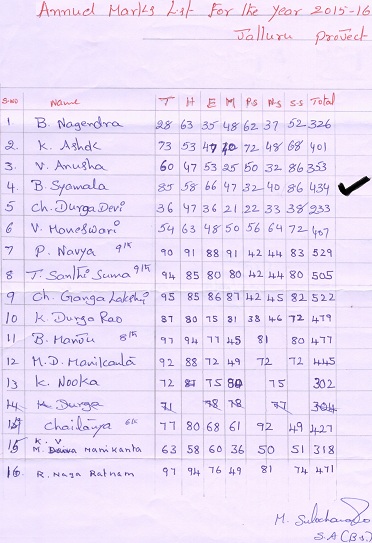 Annual Marks List For the Year 2015-16
Jalluru project
S.NO Name T H E M P.S N.S S.S Total
1 B. Nagendra 28 63 35 48 62 37 52 326
2. K. Ashok 73 53 47 70 72 48 68 401
3. V. Anusha 60 47 53 25 50 32 86 353
4. B. Syamala 85 58 66 47 32 40 86 434
5 Ch. Durga Devi 36 47 36 21 22 33 38 233
6 V. Maneswari 54 63 48 50 56 64 72 407
7 P. Navya 90 91 88 91 42 44 83 529
8 T. Santhi Suma 94 85 80 80 42 44 80 505
9 Ch. Ganga Lakshmi 95 85 86 87 42 45 82 522
10 K. Durga Rao 87 80 75 81 38 46 72 479
11 B. 97 94 77 45 81 80 477
12 M.D. Manikanta 92 88 72 49 72 72 445
13 K. Nooka 72 87 75 80 75 302
14 K. Durga 71 78 78 77 304
Chaitanya 77 80 68 61 92 49 427
15 K. V
M. Manikanta 63 58 60 36 50 51 318
16. R. Naga Ratnam 97 94 76 49 81 74 471
M.
S.A